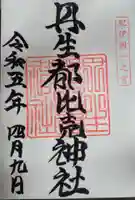 紀伊國一之宮
丹生都比売神社
令和五年 四月九日